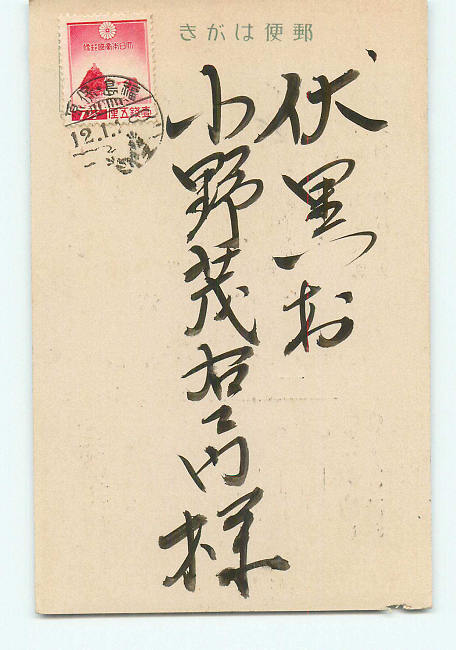 きがは便郵
大日本帝國郵便
壹錢五厘
福島・保原
12.1.
伏黒村
小野茂右エ門様